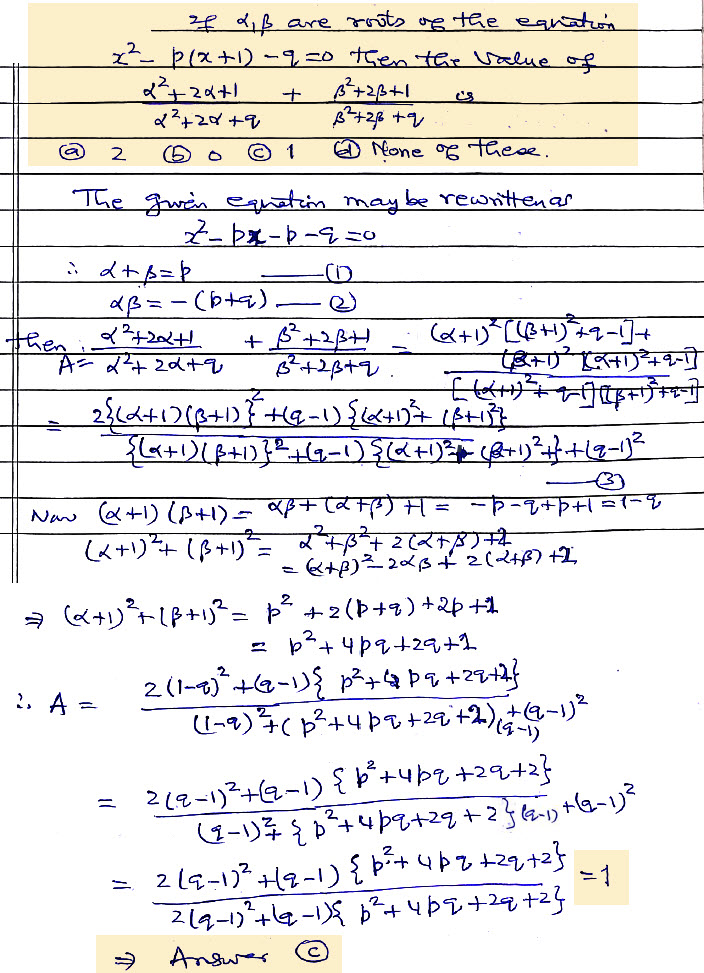 If α, β are roots of the equation
x² - p(x+1) - q = 0 then the value of
(α²+2α+1)/(α²+2α+q) + (β²+2β+1)/(β²+2β+q) is
(a) 2 (b) 0 (c) 1 (d) None of these.
The given equation may be rewritten as
x² - px - p - q = 0
∴ α+β = p —(1)
αβ = -(p+q) —(2)
then : A = (α²+2α+1)/(α²+2α+q) + (β²+2β+1)/(β²+2β+q) = ((α+1)²[(β+1)²+q-1] + (β+1)²[(α+1)²+q-1])/([(α+1)²+q-1][(β+1)²+q-1])
= (2{(α+1)(β+1)}²+(q-1){(α+1)²+(β+1)²})/({(α+1)(β+1)}²+(q-1){(α+1)²+(β+1)²+}+(q-1)²
—(3)
Now (α+1)(β+1) = αβ+(α+β)+1 = -p-q+p+1 = 1-q
(α+1)²+(β+1)² = α²+β²+2(α+β)+2
= (α+β)²-2αβ+2(α+β)+2
⇒ (α+1)²+(β+1)² = p²+2(p+q)+2p+2
= p²+4pq+2q+2
∴ A = (2(1-q)²+(q-1){p²+4pq+2q+2})/((1-q)²+(p²+4pq+2q+2)(q-1)+(q-1)²)
= (2(q-1)²+(q-1){p²+4pq+2q+2})/((q-1)²+{p²+4pq+2q+2}(q-1)+(q-1)²)
= (2(q-1)²+(q-1){p²+4pq+2q+2})/(2(q-1)²+(q-1){p²+4pq+2q+2}) = 1
⇒ Answer (c)